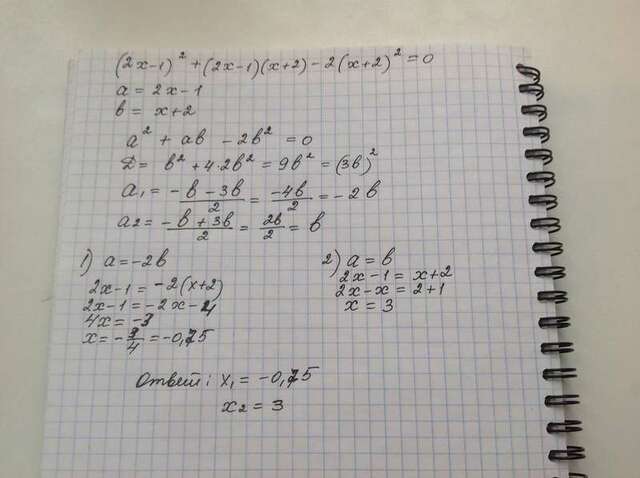 (2x-1)² + (2x-1)(x+2) - 2(x+2)² = 0
a = 2x-1
b = x+2
a² + ab - 2b² = 0
D = b² + 4·2b² = 9b² = (3b)²
a₁ = (-b-3b)/2 = -4b/2 = -2b
a₂ = (-b+3b)/2 = 2b/2 = b
1) a = -2b
2x-1 = -2(x+2)
2x-1 = -2x-4
4x = -3
x = -3/4 = -0,75
2) a = b
2x-1 = x+2
2x-x = 2+1
x = 3
Ответ: x₁ = -0,75
x₂ = 3